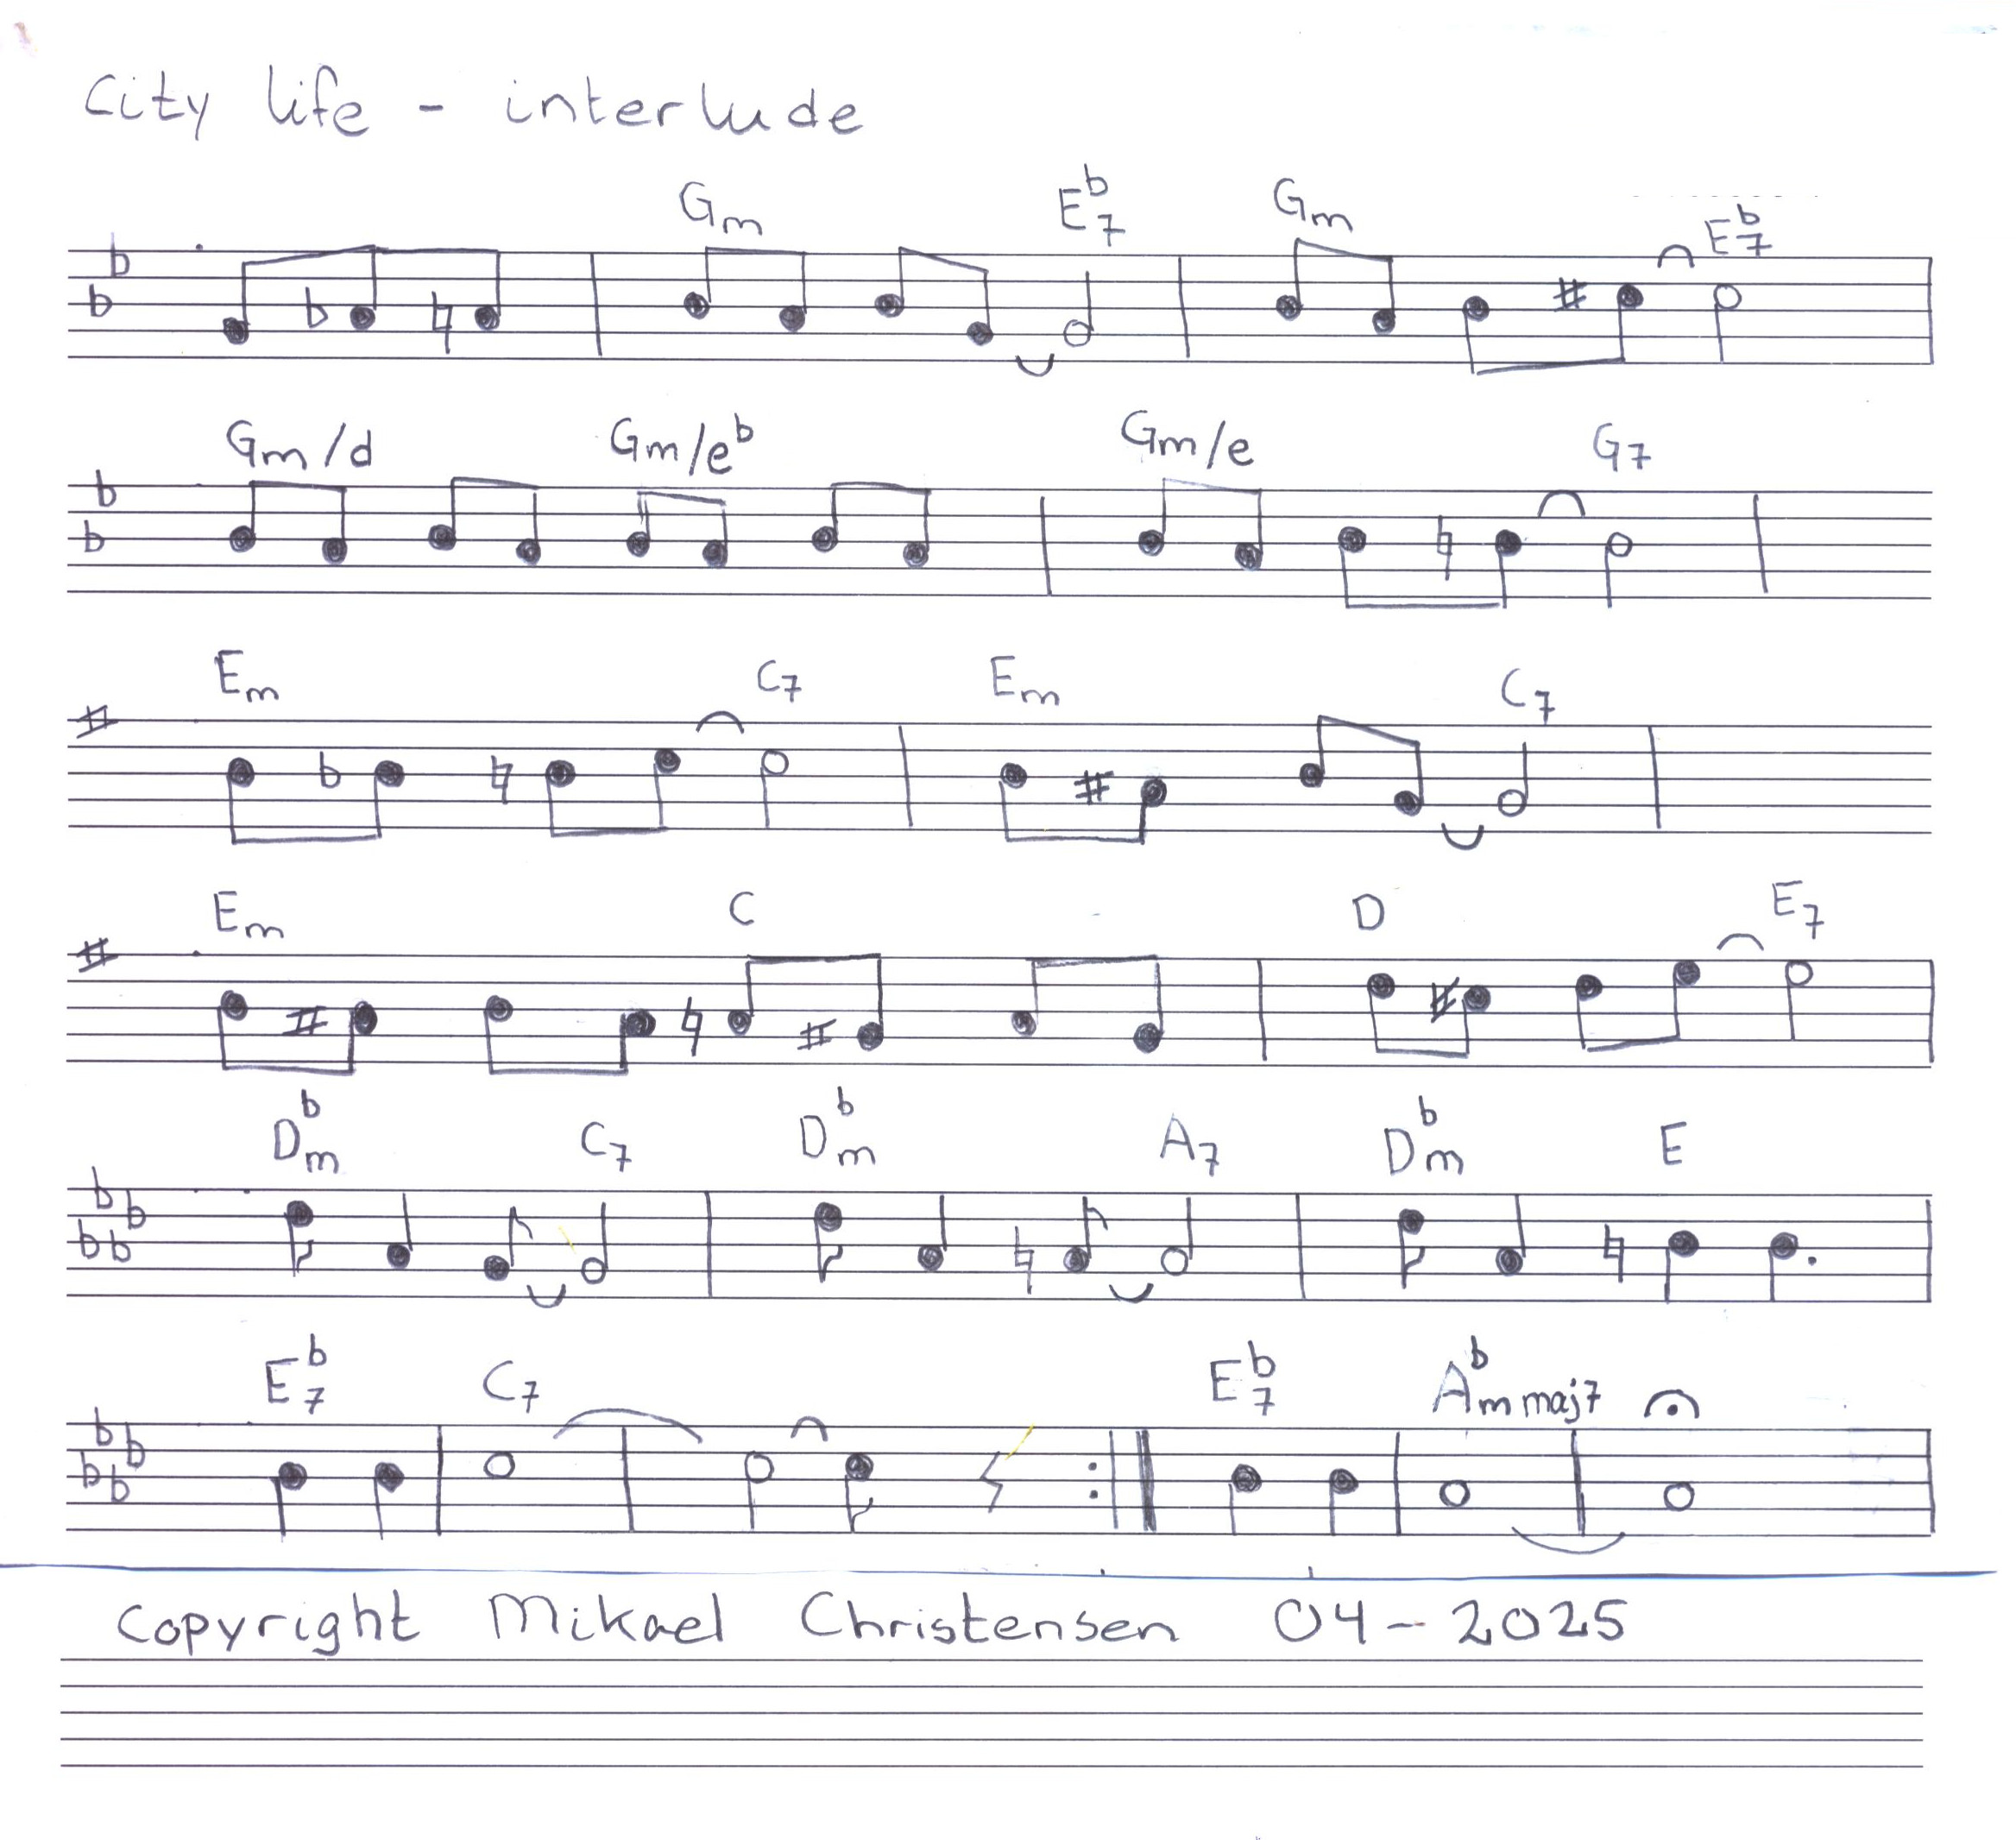 City life - interlude
Gm E♭7 Gm E♭7
Gm/d Gm/e♭ Gm/e G7
Em C7 Em C7
Em C D E7
D♭m C7 D♭m A7 D♭m E
E♭7 C7 E♭7 A♭m maj7
Copyright Mikael Christensen 04-2025